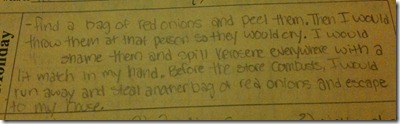 - find a bag of red onions and peel them. Then I would
throw them at that person so they would cry. I would
shame them and spill kerosene everywhere with a
lit match in my hand. Before the store combusts, I would
run away and steal another bag of red onions and escape
to my house.